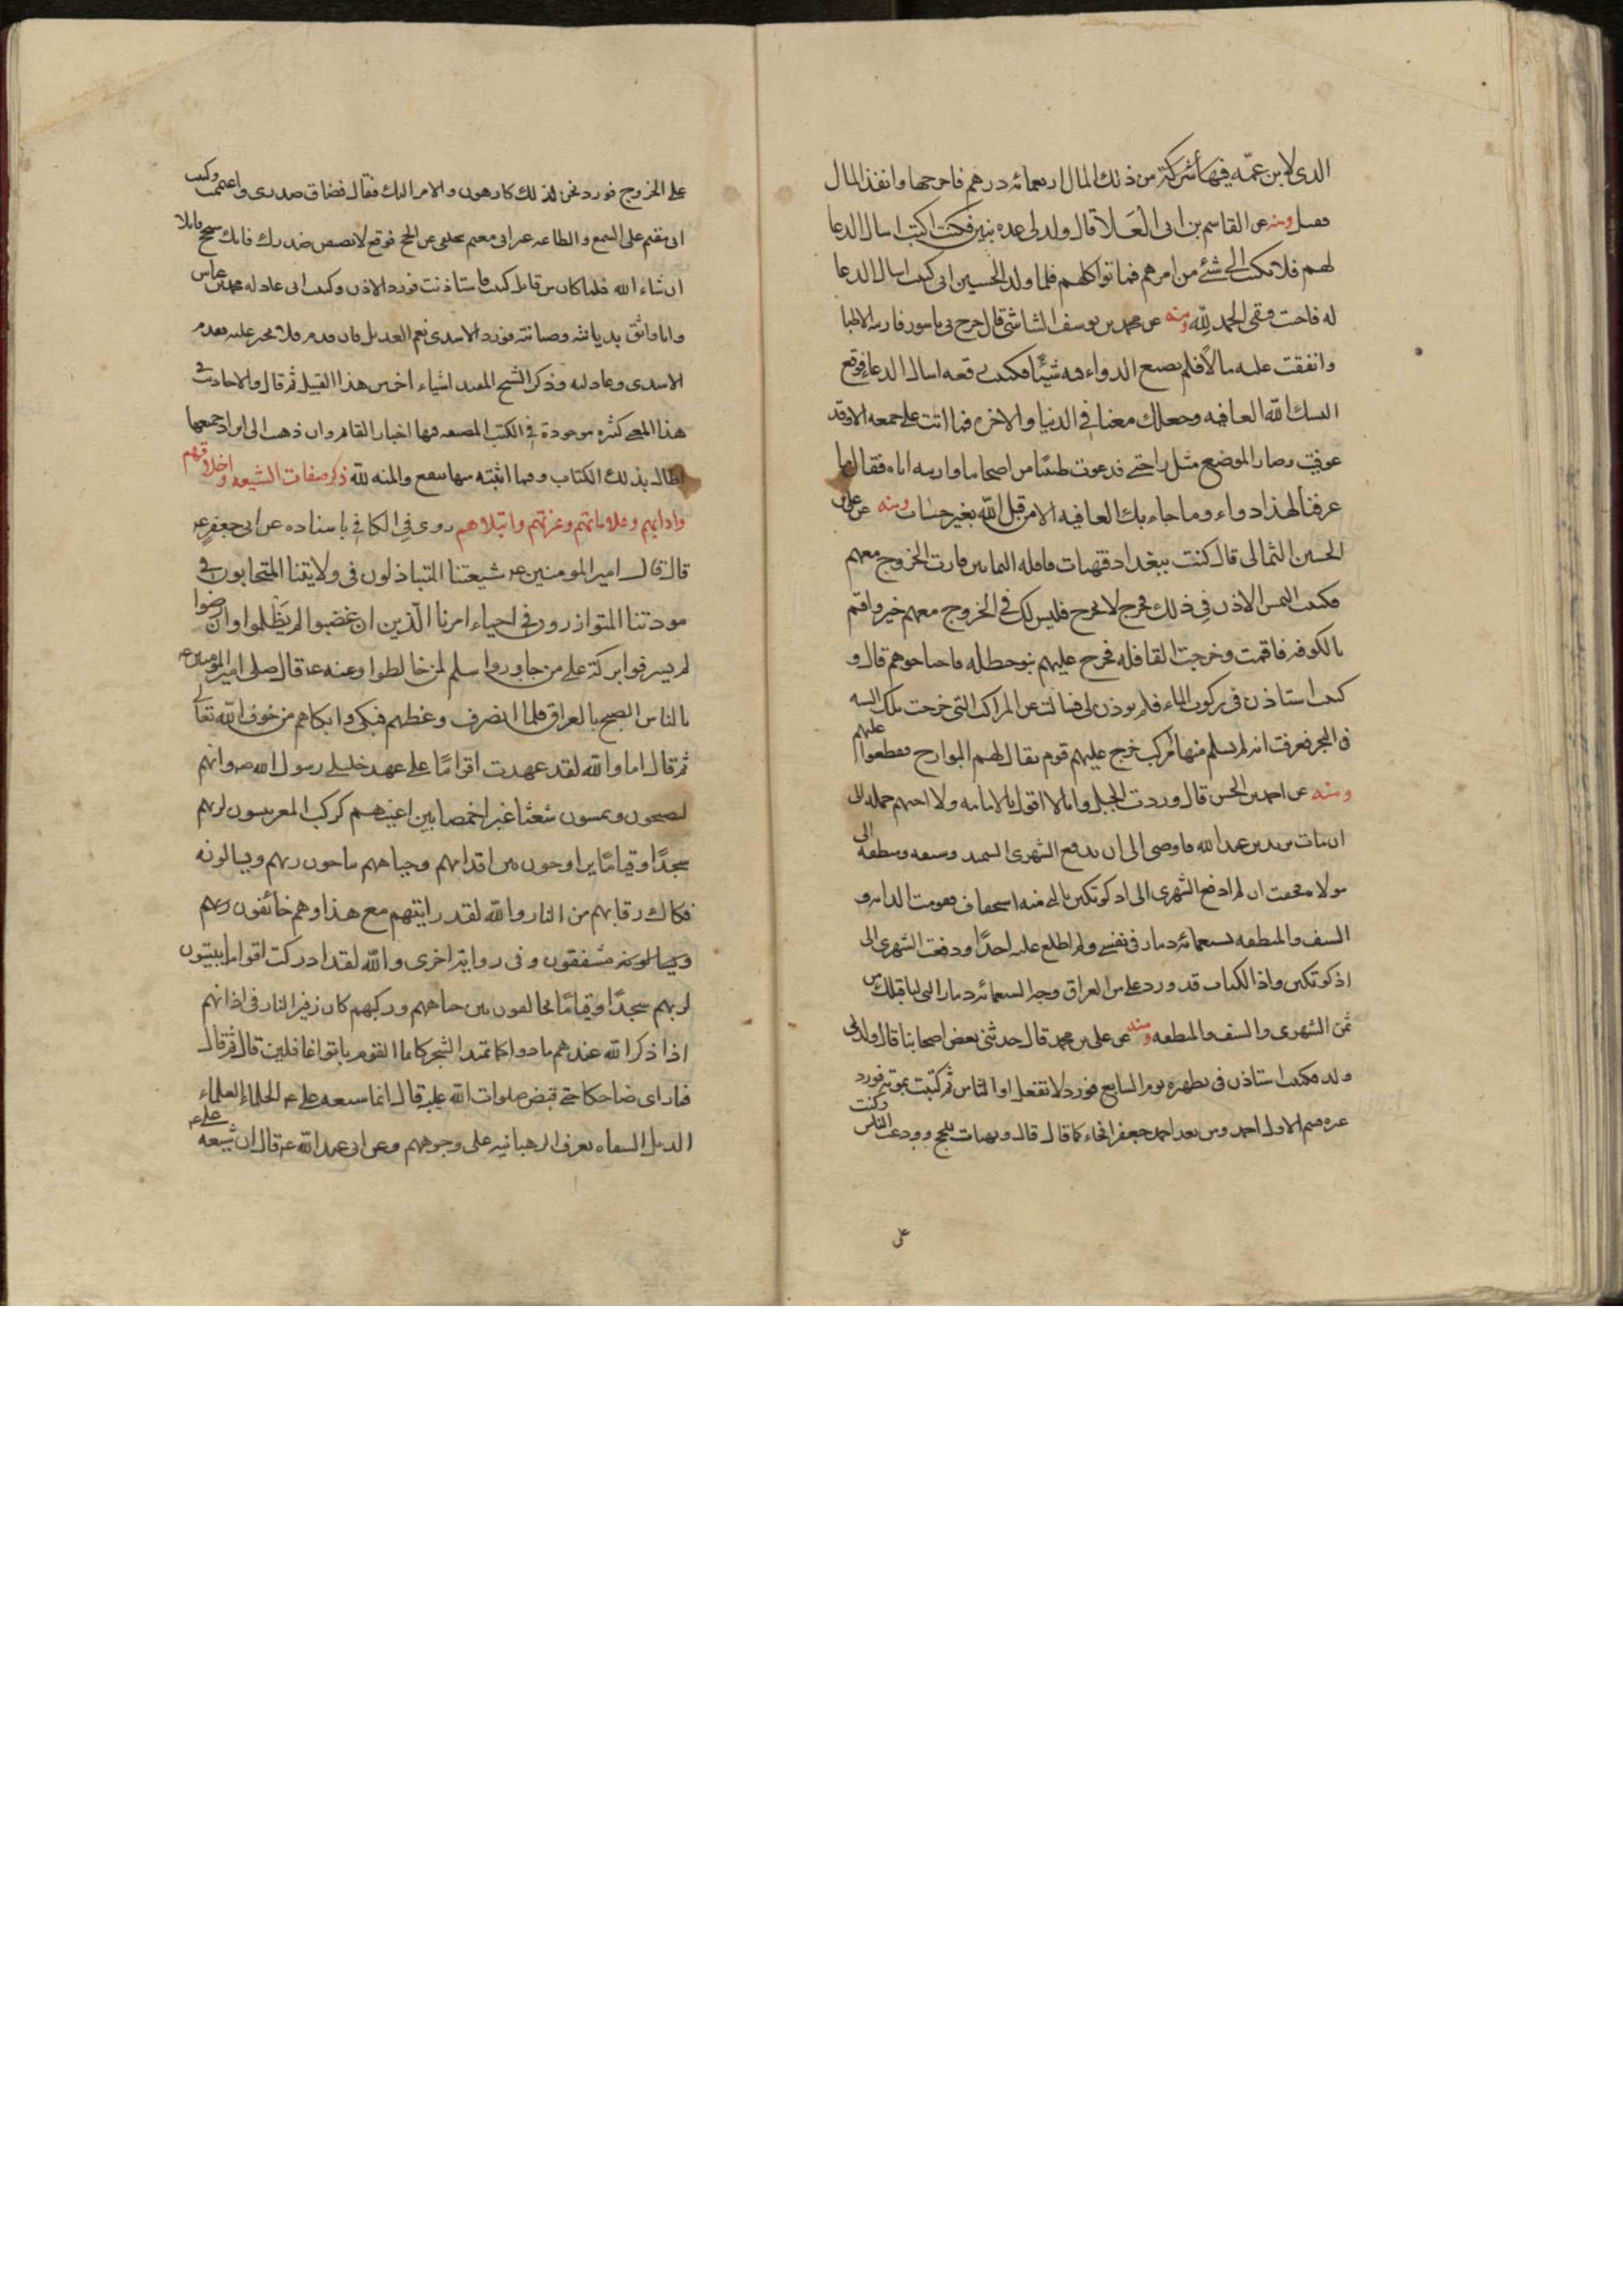 الذى لابن عمه فيها شركة من ذلك المال اربعمائة درهم فاخرجها وانفذ المال
فقبل ومنه عن القاسم بن ابى العلا قال ولد لى عدة بنين فكنت اكتب اسال الدعا
لهم فلا يكتب الى شئ من امرهم فماتوا كلهم فلما ولد الحسين ابنى كتبت اسال الدعا
له فاجبت وبقى الحمد لله ومنه عن محمد بن يوسف الشاشى قال خرج بى ناسور فاريته الاطبا
وانفقت عليه مالا فلم يصنع الدواء فيه شيئا فكتبت رقعه اسال الدعا فوقع
البسك الله العافيه وجعلك معنا فى الدنيا والاخره فما اتت على جمعه الا وقد
عوفيت وصار الموضع مثل راحتى فدعوت طبيبا من اصحابنا واريته اياه فقال ما
عرفنا لهذا دواء وما جاءبك العافيه الا من قبل الله بغير حساب ومنه عن على بن
الحسين اليمانى قال كنت ببغداد فتهيات قافله اليمانين فاردت الخروج معهم
فكتبت التمس الاذن فى ذلك فخرج لا تخرج فليس لك فى الخروج معهم خير واقم
بالكوفه فاقمت وخرجت القافله فخرج عليهم بنو حنظله فاجتاحوهم قال و
كتبت استاذن فى ركوب الماء فلم يوذن لى فسالت عن المراكب التى خرجت تلك السنه
فى البحر فعرفت انه لم يسلم منها مركب خرج عليهم قوم يقال لهم البوارح فقطعوا عليهم
ومنه عن احمد بن الحسن قال وردت الجبل وانا لا اقول بالامامه ولا احبهم جمله الى
ان مات يزيد بن عبد الله فاوصى الى ان يدفع الشهرى السمند وسيفه ومنطقه الى
مولاه فخفت ان لم ادفع الشهرى الى اذكوتكين نالنى منه استخفاف فقومت الدابه و
السيف والمنطقه بسبعمائة دينار فى نفسى ولم اطلع عليه احدا ودفعت الشهرى الى
اذكوتكين واذا الكتاب قد ورد على من العراق وجه السبعمائة دينار التى لنا قبلك من
ثمن الشهرى والسيف والمنطقه ومنه عن على بن محمد قال حدثنى بعض اصحابنا قال ولد لى
ولد فكتبت استاذن فى تطهيره يوم السابع فورد لا تفعل او الناس ثم كتبت بموته فورد
غيره فسم الاول احمد ومن بعد احمد جعفر فجاء كما قال قال وتهيات للحج وودعت الناس وكنت
على
على الخروج فورد نحن لذلك كارهون والامر اليك فقال فضاق صدرى واغتممت وكتبت
انى مقيم على السمع والطاعه غير انى مغتم بتخلفى عن الحج فوقع لا يضيقن صدرك فانك ستحج قابلا
ان شاء الله فلما كان من قابل كتبت فاستاذنت فورد الاذن وكتبت انى عادلت محمد بن عباس
وانا واثق بديانته وصيانته فورد الاسدى نعم العديل فان قدم فلا تختر عليه فقدم
الاسدى وعادلته وذكر الشيخ المفيد اشياء اخر من هذا القبيل ثم قال والاحاديث فى
هذا المعنى كثيره موجودة فى الكتب المصنفه فيها اخبار القائم وان ذهبت الى ايراد جميعها
لطال بذلك الكتاب وفيما اثبته منها مقنع والمنه لله ذكر صفات الشيعه واخلاقهم
وادابهم وعلاماتهم وعزتهم وابتلاهم روى فى الكافى باسناده عن ابى جعفر ع
قال قال امير المومنين ع شيعتنا المتباذلون فى ولايتنا المتحابون فى
مودتنا المتوازرون فى احياء امرنا الذين ان غضبوا لم يظلموا وان رضوا
لم يسرفوا بركة على من جاوروا سلم لمن خالطوا وعنه ع قال صلى امير المومنين ع
بالناس الصبح بالعراق فلما انصرف وعظهم فبكى وابكاهم من خوف الله تعالى
ثم قال اما والله لقد عهدت اقواما على عهد خليلى رسول الله ص وانهم
ليصبحون ويمسون شعثا غبرا خمصا بين اعينهم كركب المعز يبيتون لربهم
سجدا وقياما يراوحون بين اقدامهم وجباههم يناجون ربهم ويسالونه
فكاك رقابهم من النار والله لقد رايتهم مع هذا وهم خائفون
مشفقون وفى رواية اخرى والله لقد ادركت اقواما يبيتون
لربهم سجدا وقياما يخالفون بين جباههم وركبهم كان زفير النار فى اذانهم
اذا ذكر الله عندهم مادوا كما تميد الشجر كانما القوم باتوا غافلين قال ثم قال
فما راى ضاحكا حتى قبض صلوات الله عليه قال انما شيعه على ع الحلماء العلماء
الذبل الشفاه تعرف الرهبانيه على وجوههم وعن ابى عبد الله ع قال ان شيعه على ع